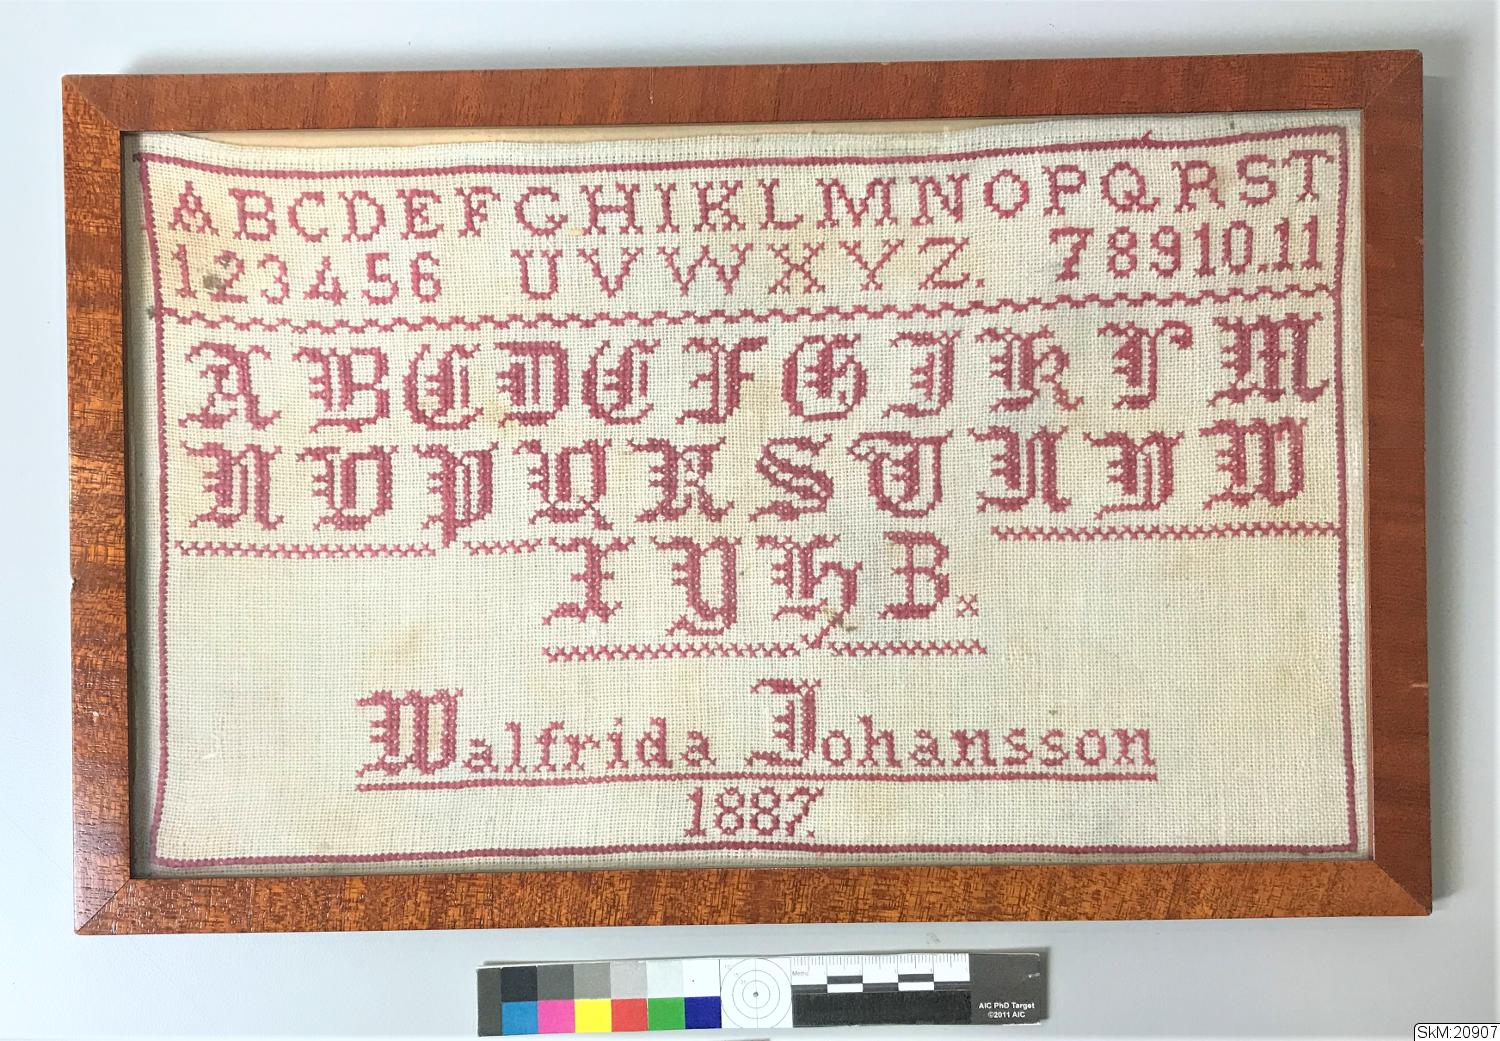 ABCDEFGHIKLMNOPQRST
123456 UVWXYZ. 78910.11
ABCDEFGIKLM
NOPQRSTUVW
XYHB.
Walfrida Johansson
1887.
AIC PhD Target
©2011 AIC
SkM:20907